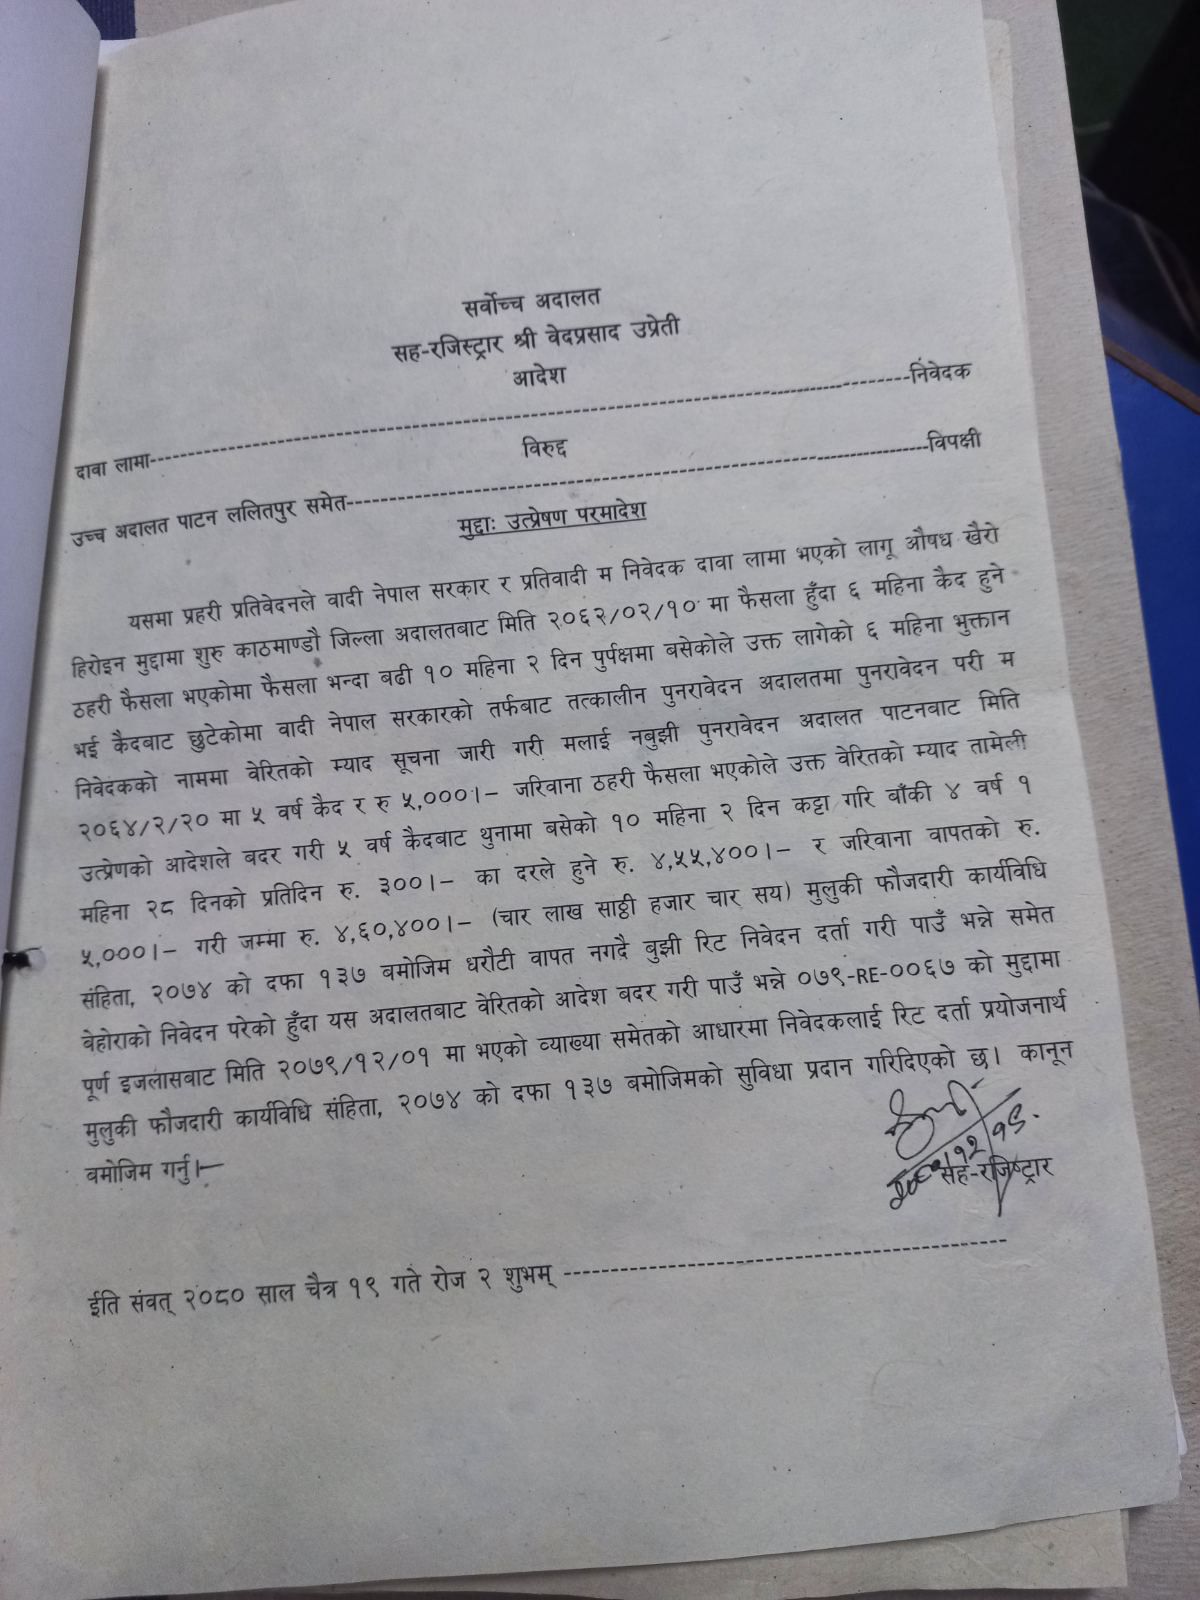 सर्वोच्च अदालत
सह-रजिस्ट्रार श्री वेदप्रसाद उप्रेती
आदेश
दावा लामा------------------------------------------------------------निवेदक
विरुद्द
उच्च अदालत पाटन ललितपुर समेत------------------------------------------------विपक्षी
मुद्दाः उत्प्रेषण परमादेश
यसमा प्रहरी प्रतिवेदनले वादी नेपाल सरकार र प्रतिवादी म निवेदक दावा लामा भएको लागू औषध खैरो
हिरोइन मुद्दामा शुरु काठमाण्डौ जिल्ला अदालतबाट मिति २०६२/०२/१० मा फैसला हुँदा ६ महिना कैद हुने
ठहरी फैसला भएकोमा फैसला भन्दा बढी १० महिना २ दिन पुर्पक्षमा बसेकोले उक्त लागेको ६ महिना भुक्तान
भई कैदबाट छुटेकोमा वादी नेपाल सरकारको तर्फबाट तत्कालीन पुनरावेदन अदालतमा पुनरावेदन परी म
निवेदकको नाममा वेरितको म्याद सूचना जारी गरी मलाई नबुझी पुनरावेदन अदालत पाटनवाट मिति
२०६४/२/२० मा ५ वर्ष कैद र रु ५,०००।- जरिवाना ठहरी फैसला भएकोले उक्त वेरितको म्याद तामेली
उत्प्रेणको आदेशले बदर गरी ५ वर्ष कैदबाट थुनामा बसेको १० महिना २ दिन कट्टा गरि बाँकी ४ वर्ष १
महिना २८ दिनको प्रतिदिन रु. ३००।- का दरले हुने रु. ४,५५,४००।- र जरिवाना वापतको रु.
५,०००।- गरी जम्मा रु. ४,६०,४००।- (चार लाख साठ्ठी हजार चार सय) मुलुकी फौजदारी कार्यविधि
संहिता, २०७४ को दफा १३७ बमोजिम धरौटी वापत नगदै बुझी रिट निवेदन दर्ता गरी पाउँ भन्ने समेत
बेहोराको निवेदन परेको हुँदा यस अदालतबाट वेरितको आदेश बदर गरी पाउँ भन्ने ०७९-RE-००६७ को मुद्दामा
पूर्ण इजलासवाट मिति २०७९/१२/०१ मा भएको व्याख्या समेतको आधारमा निवेदकलाई रिट दर्ता प्रयोजनार्थ
मुलुकी फौजदारी कार्यविधि संहिता, २०७४ को दफा १३७ बमोजिमको सुविधा प्रदान गरिदिएको छ। कानून
बमोजिम गर्नु।-
सह-रजिष्ट्रार
ईति संवत् २०८० साल चैत्र १९ गते रोज २ शुभम् ------------------------------------------------